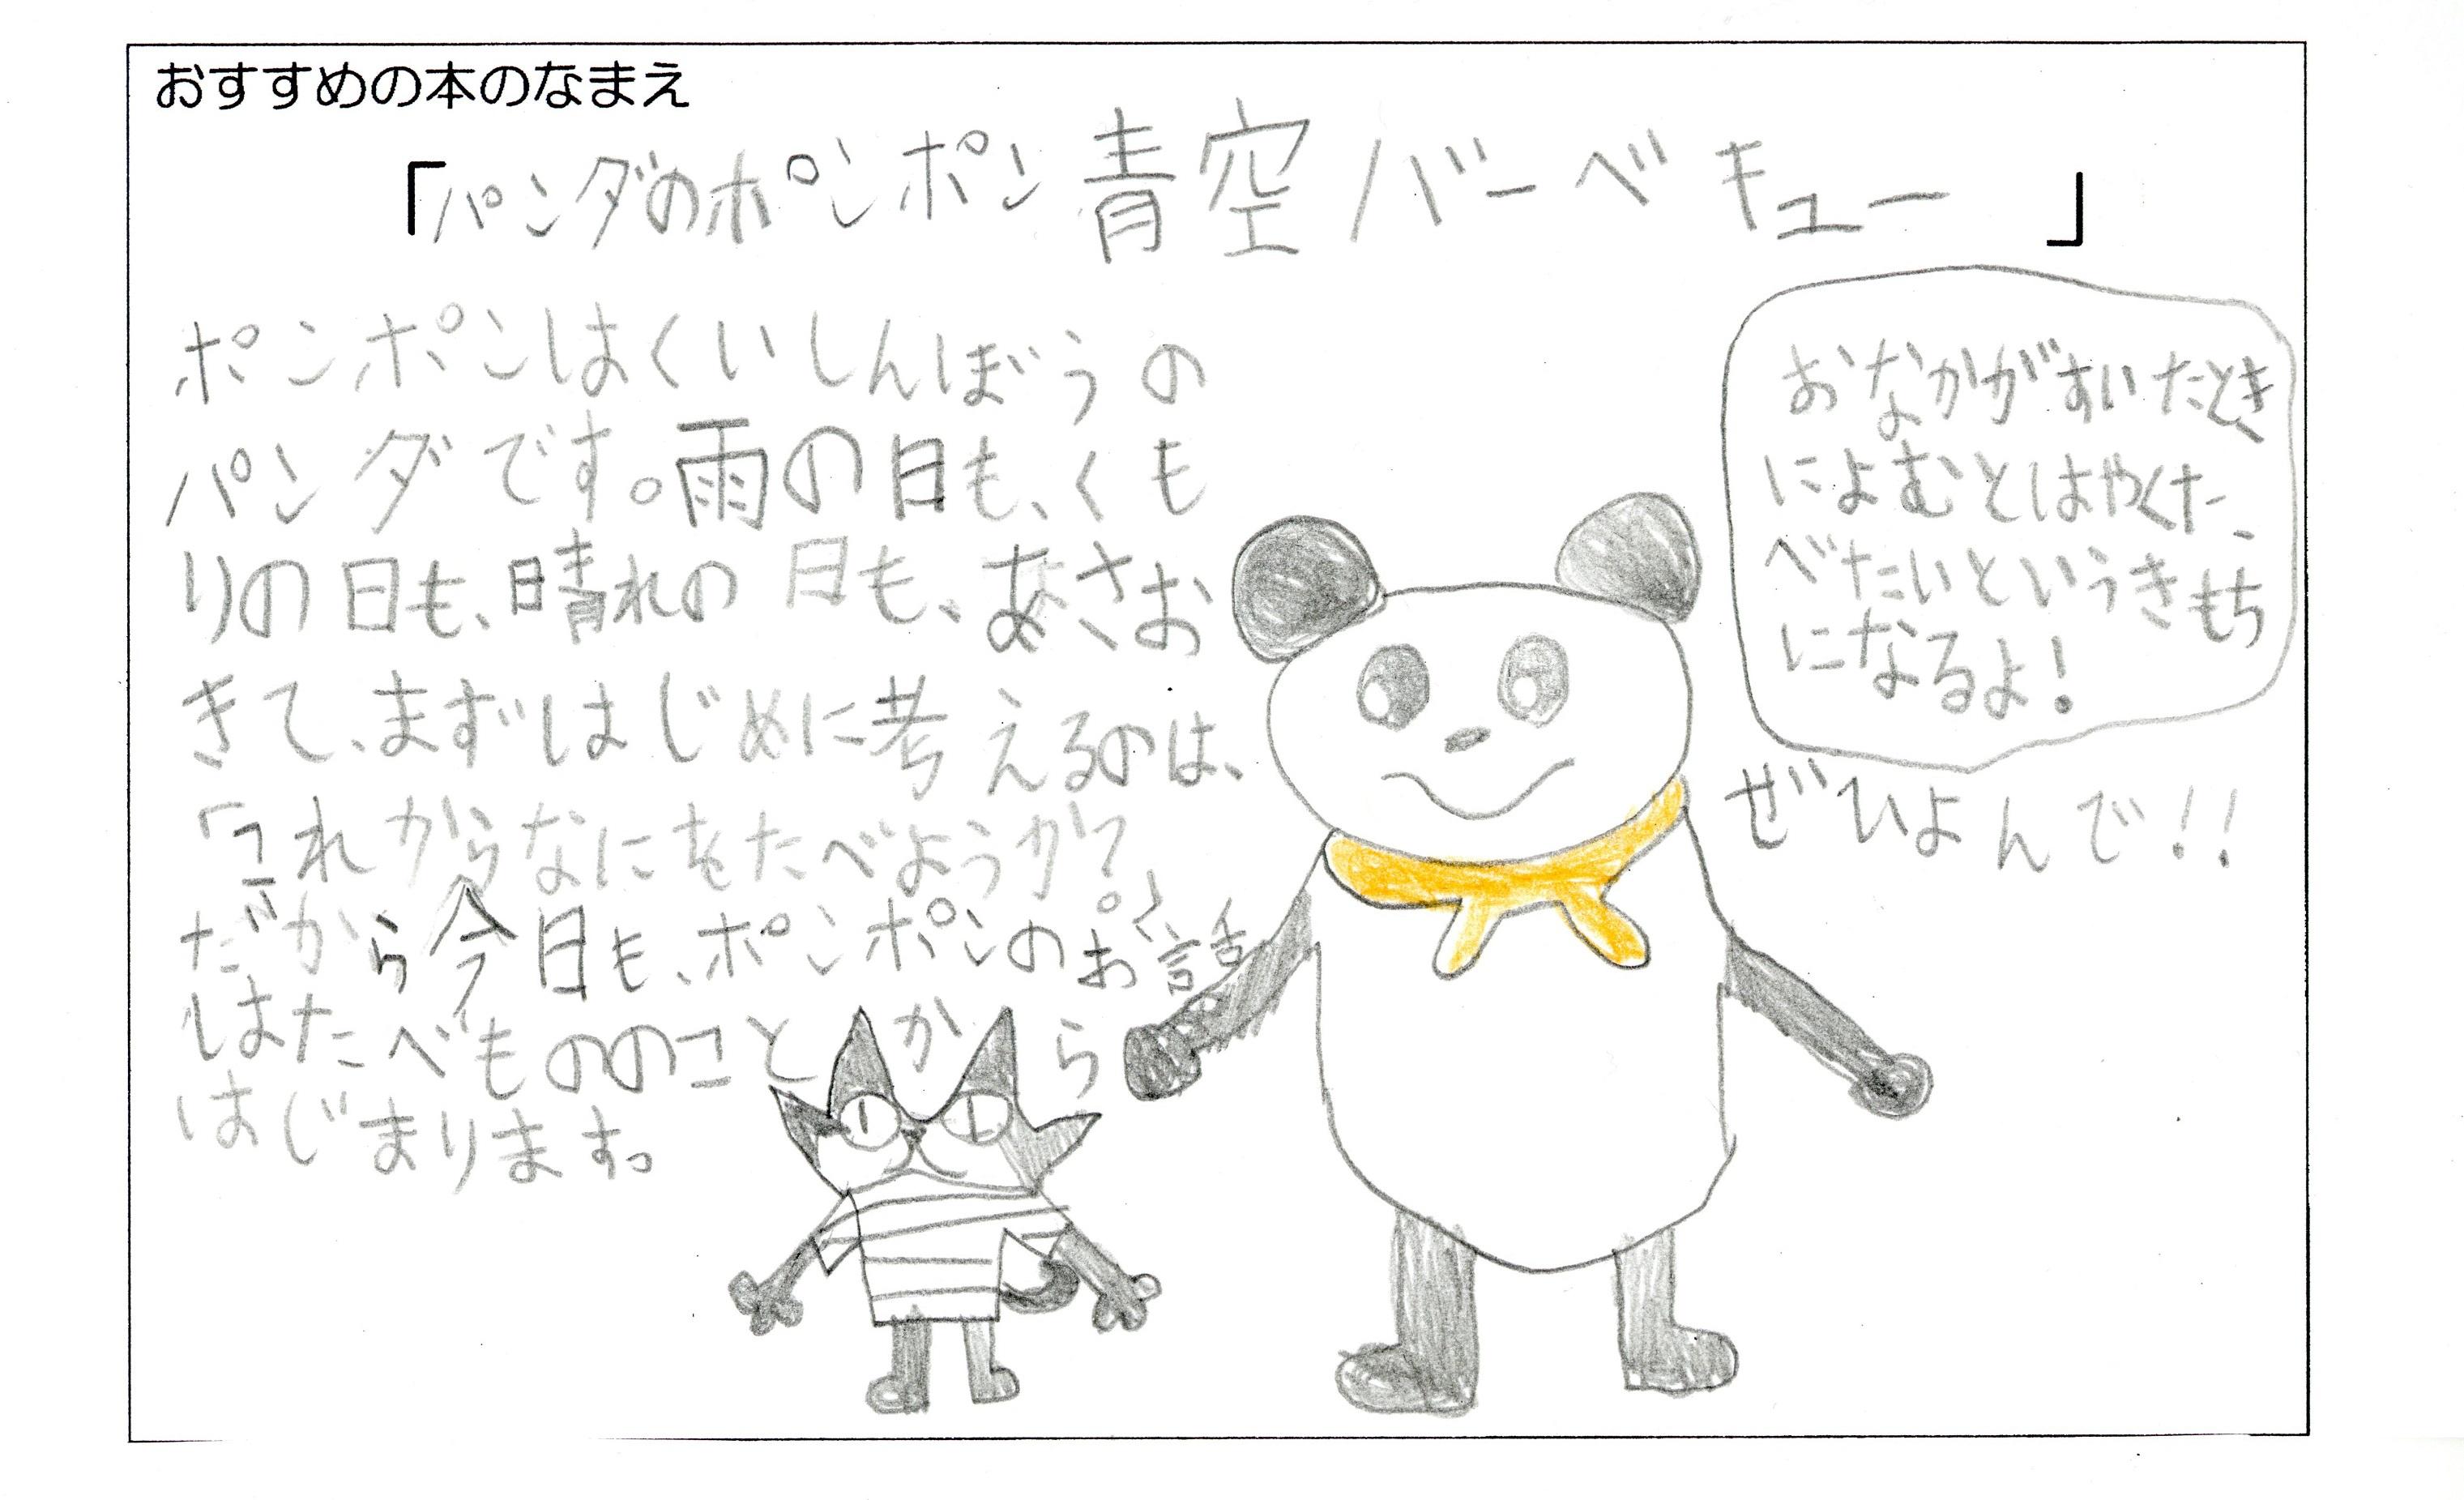 おすすめの本のなまえ
「パンダのポンポン青空バーベキュー」
ポンポンはくいしんぼうの
パンダです。雨の日も、くも
りの日も、晴れの日も、あさお
きて、まずはじめに考えるのは、
「これからなにをたべようか?
。」
だから今日も、ポンポンのお話
はたべもののことから
はじまります。
おなかがすいたとき
によむとはやくた
べたいというきもち
になるよ!
ぜひよんで!!